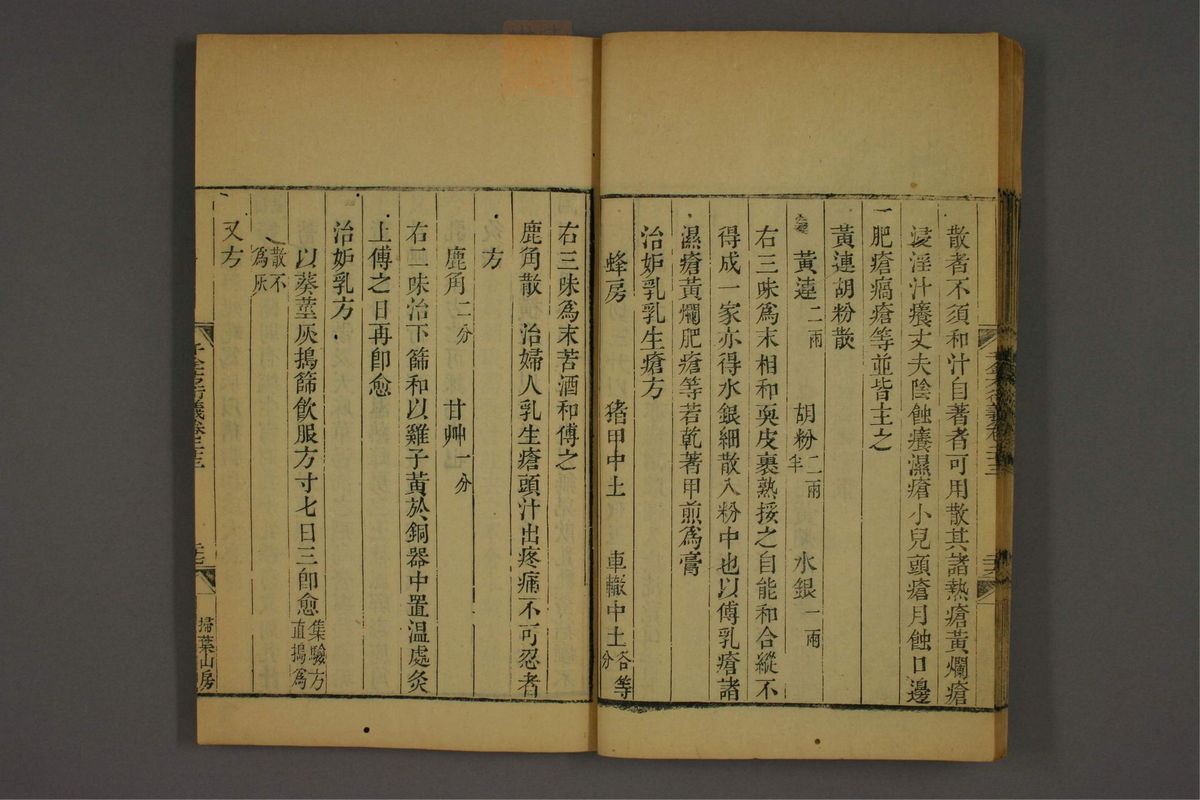 散者不須和汁自著者可用散其諸熱瘡黃爛瘡
浸淫汁癢丈夫陰蝕癢濕瘡小兒頭瘡月蝕口邊
肥瘡瘑瘡等並皆主之
黃連胡粉散
黃連二兩 胡粉二兩半 水銀一兩
右三味爲末相和耎皮裹熟挼之自能和合縱不
得成一家亦得水銀細散入粉中也以傅乳瘡諸
濕瘡黃爛肥瘡等若乾著甲煎爲膏
治妒乳乳生瘡方
蜂房 猪甲中土 車轍中土各等分
千金方衍義卷二十三
右三味爲末苦酒和傅之
鹿角散 治婦人乳生瘡頭汁出疼痛不可忍者
方
鹿角二分 甘艸一分
右二味治下篩和以雞子黃於銅器中置温處炙
上傅之日再卽愈
治妒乳方
以葵莖灰搗篩飮服方寸匕日三卽愈集驗方直搗爲
散不爲灰
又方
千金方衍義卷二十三
掃葉山房